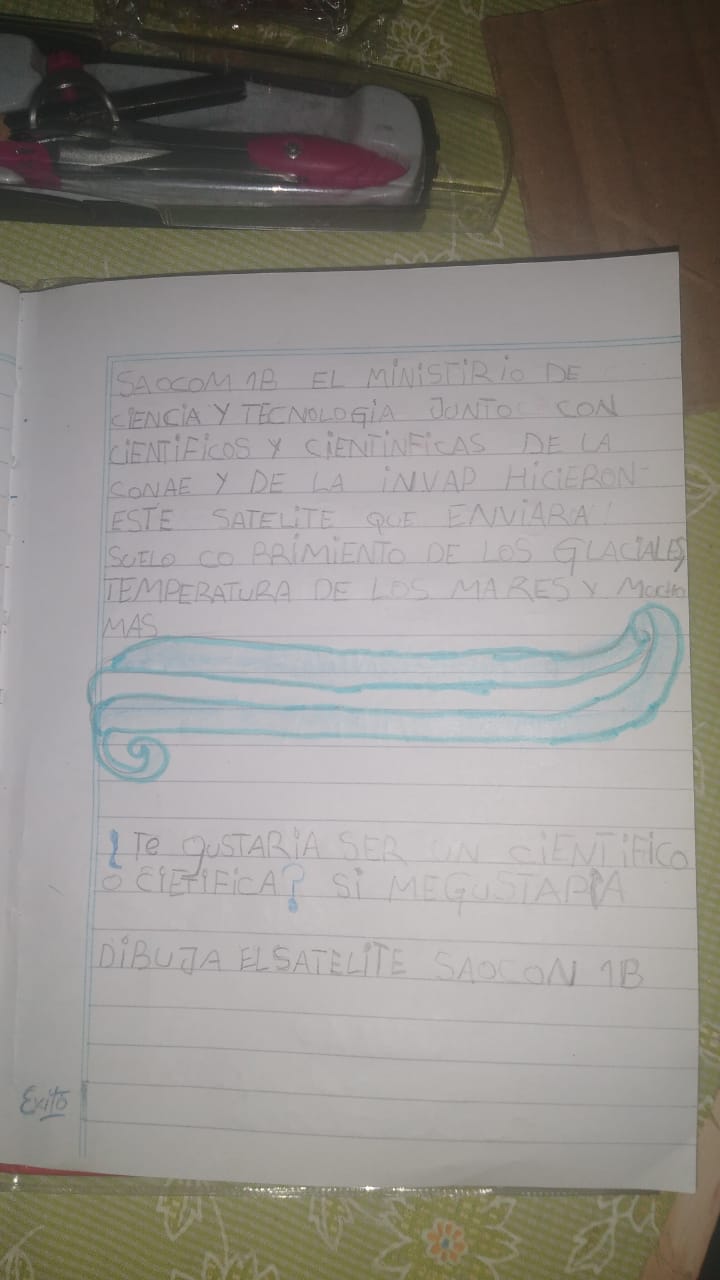 SAOCOM 1B EL MINISTIRIO DE
CIENCIA Y TECNOLOGIA JUNTO CON
CIENTIFICOS Y CIENTINFICAS DE LA
CONAE Y DE LA INVAP HICIERON
ESTE SATELITE QUE ENVIARA
SUELO CO RRIMIENTO DE LOS GLACIALES,
TEMPERATURA DE LOS MARES Y Mucho
MAS
¿Te gUSTARIA SER UN CIENTIFICO
O CIETIFICA? SI MEGUSTARIA
DIBUJA EL SATELITE SAOCON 1B
Exito